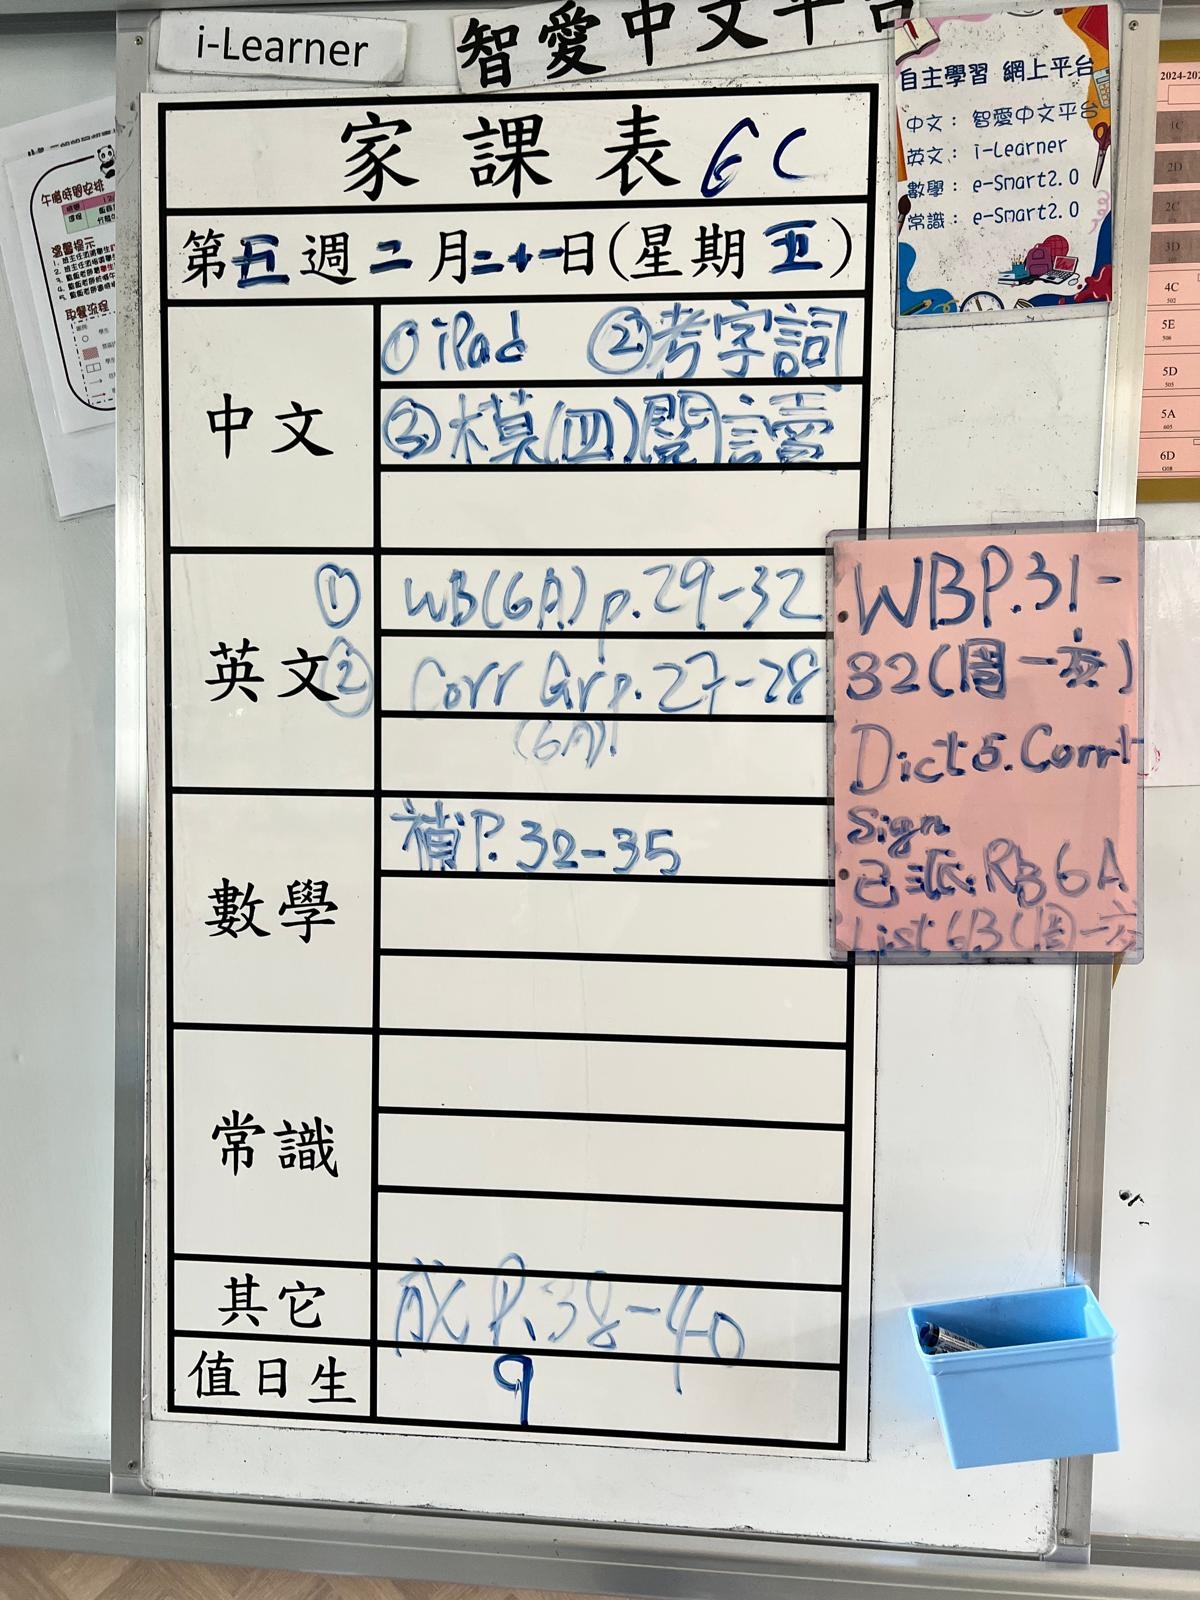 i-Learner
智愛中文平台
家課表 6C
第五週二月二十一日(星期五)
中文
①iPad ②考字詞
③模(四)閱讀
英文
① WB(6A) p.29-32
② Corr Gr p.27-28
(6A)
數學
補P.32-35
常識
其它
成P.38-40
值日生
9
自主學習 網上平台
中文：智愛中文平台
英文：i-Learner
數學：e-Smart2.0
常識：e-Smart2.0
WBP.31-
32(周一交)
Dict5.Corr+
Sign
已派:RB6A
List6B(周一交
午膳時間安排
溫馨提示
取餐流程
2024-202
1C
2D
2C
3D
4C
502
5E
506
5D
505
5A
605
6D
G08